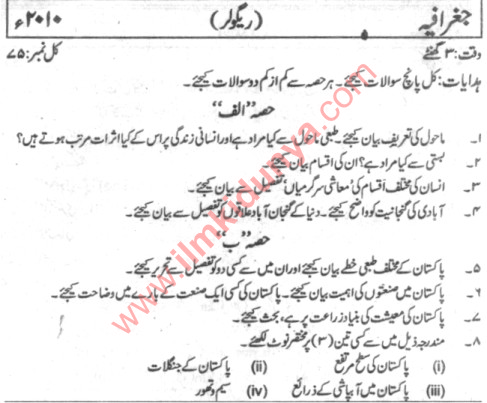 جغرافیہ (ریگولر) ۲۰۱۰ء
وقت: ۳ گھنٹے کل نمبر: ۷۵
ہدایات: کل پانچ سوالات کیجئے۔ ہر حصہ سے کم از کم دو سوالات کیجئے۔
حصہ "الف"
۱۔ ماحول کی تعریف بیان کیجئے۔ طبعی ماحول سے کیا مراد ہے اور انسانی زندگی پر اس کے کیا اثرات مرتب ہوتے ہیں؟
۲۔ بستی سے کیا مراد ہے؟ ان کی اقسام بیان کیجئے۔
۳۔ انسان کی مختلف اقسام کی معاشی سرگرمیاں تفصیل سے بیان کیجئے۔
۴۔ آبادی کی گنجانیت کو واضح کیجئے۔ دنیا کے گنجان آباد علاقوں کو تفصیل سے بیان کیجئے۔
حصہ "ب"
۵۔ پاکستان کے مختلف طبعی خطے بیان کیجئے اور ان میں سے کسی دو کو تفصیل سے تحریر کیجئے۔
۶۔ پاکستان میں صنعتوں کی اہمیت بیان کیجئے۔ پاکستان کی کسی ایک صنعت کے بارے میں وضاحت کیجئے۔
۷۔ پاکستان کی معیشت کی بنیاد زراعت پر ہے، بحث کیجئے۔
۸۔ مندرجہ ذیل میں سے کسی تین (۳) پر مختصر نوٹ لکھئے۔
(i) پاکستان کی سطح مرتفع (ii) پاکستان کے جنگلات
(iii) پاکستان میں آبپاشی کے ذرائع (iv) سیم و تھور
www.ilmkidunya.com